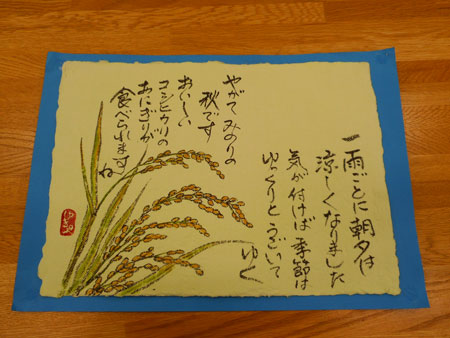 一雨ごとに朝夕は
涼しくなりました
気が付けば季節は
ゆっくりとうごいて
ゆく
やがてみのりの
秋です
おいしい
コシヒカリの
おにぎりが
食べられますね